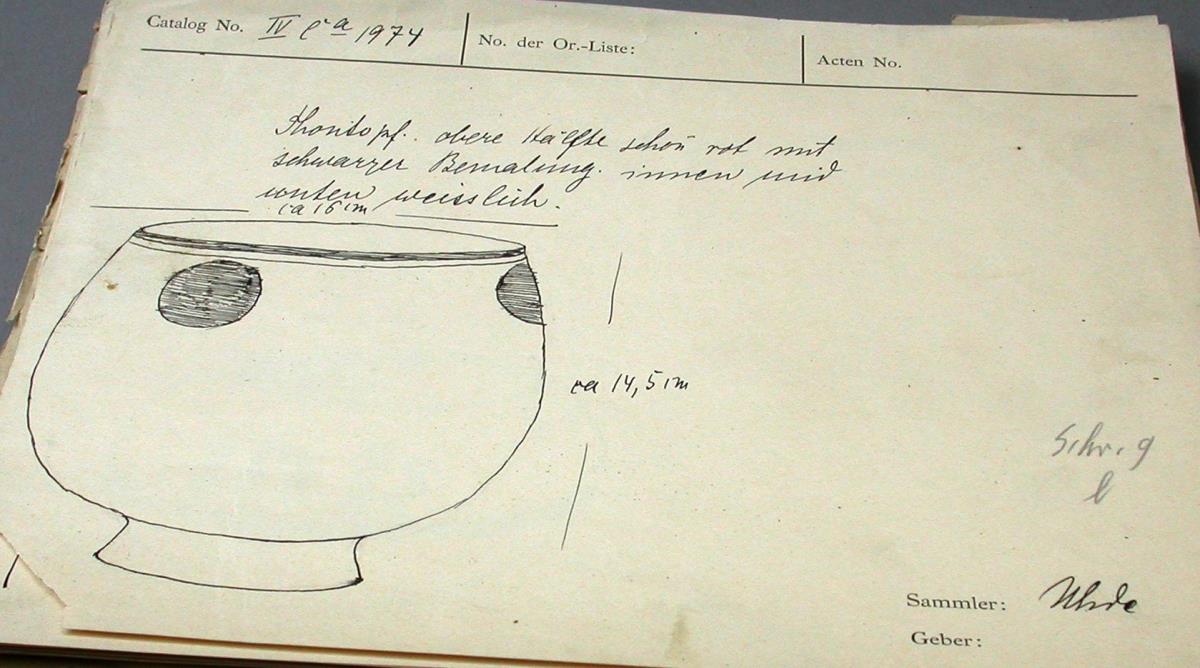 Catalog No. IV Ca 1974
No. der Or.-Liste:
Acten No.
Thontopf. obere Hälfte schön rot mit
schwarzer Bemalung. innen und
unten weisslich.
ca 16 cm
ca 14,5 cm
Schr. 9
l
Sammler: Uhde
Geber: